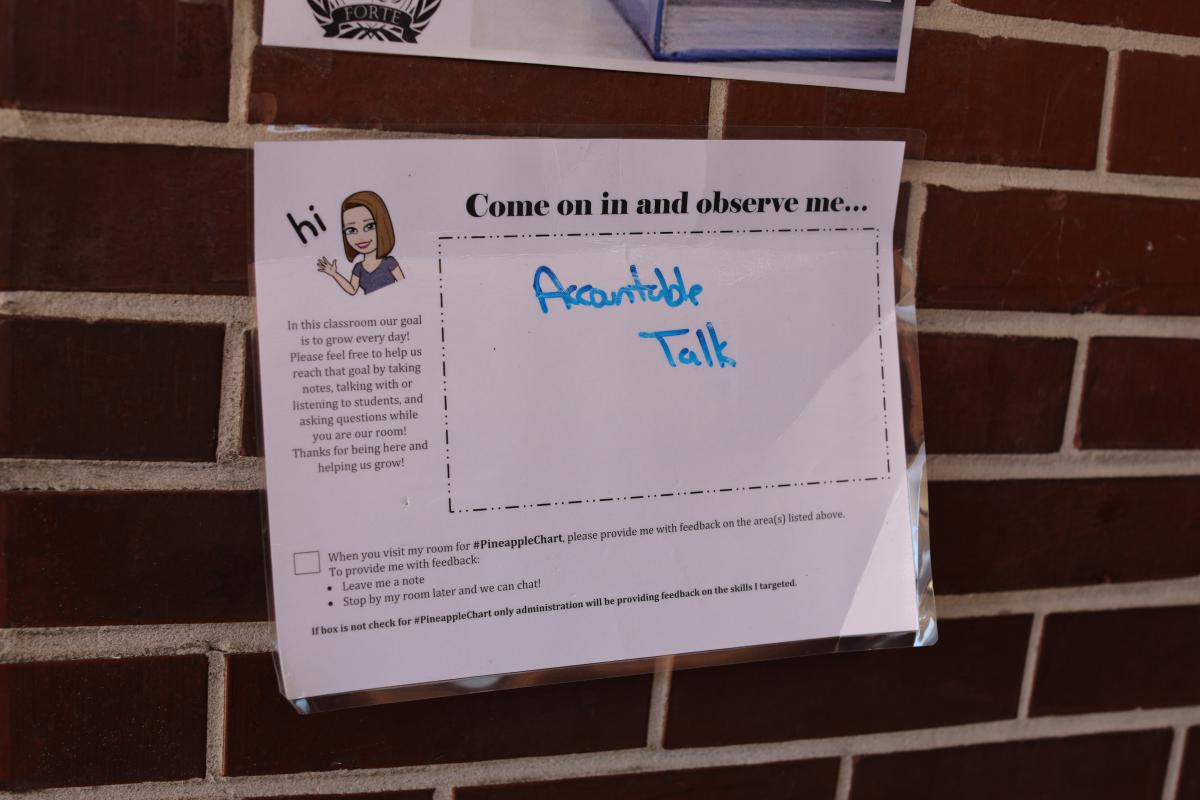 FORTE
hi
Come on in and observe me...
Accountable
Talk
In this classroom our goal
is to grow every day!
Please feel free to help us
reach that goal by taking
notes, talking with or
listening to students, and
asking questions while
you are our room!
Thanks for being here and
helping us grow!
When you visit my room for #PineappleChart, please provide me with feedback on the area(s) listed above.
To provide me with feedback:
• Leave me a note
• Stop by my room later and we can chat!
If box is not check for #PineappleChart only administration will be providing feedback on the skills I targeted.